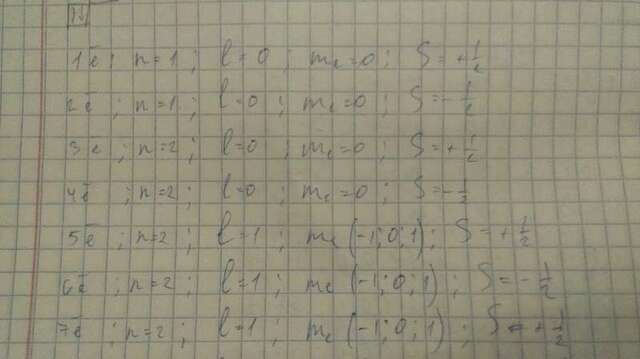 ↑↓
1ē; n=1; l=0; mₑ=0; S=+1/2
2ē; n=1; l=0; mₑ=0 S=-1/2
3ē; n=2; l=0; mₑ=0; S=+1/2
4ē; n=2; l=0; mₑ=0 S=-1/2
5ē; n=2; l=1; mₑ(-1;0;1); S=+1/2
6ē; n=2; l=1; mₑ(-1;0;1); S=-1/2
7ē; n=2; l=1; mₑ(-1;0;1); S=+1/2